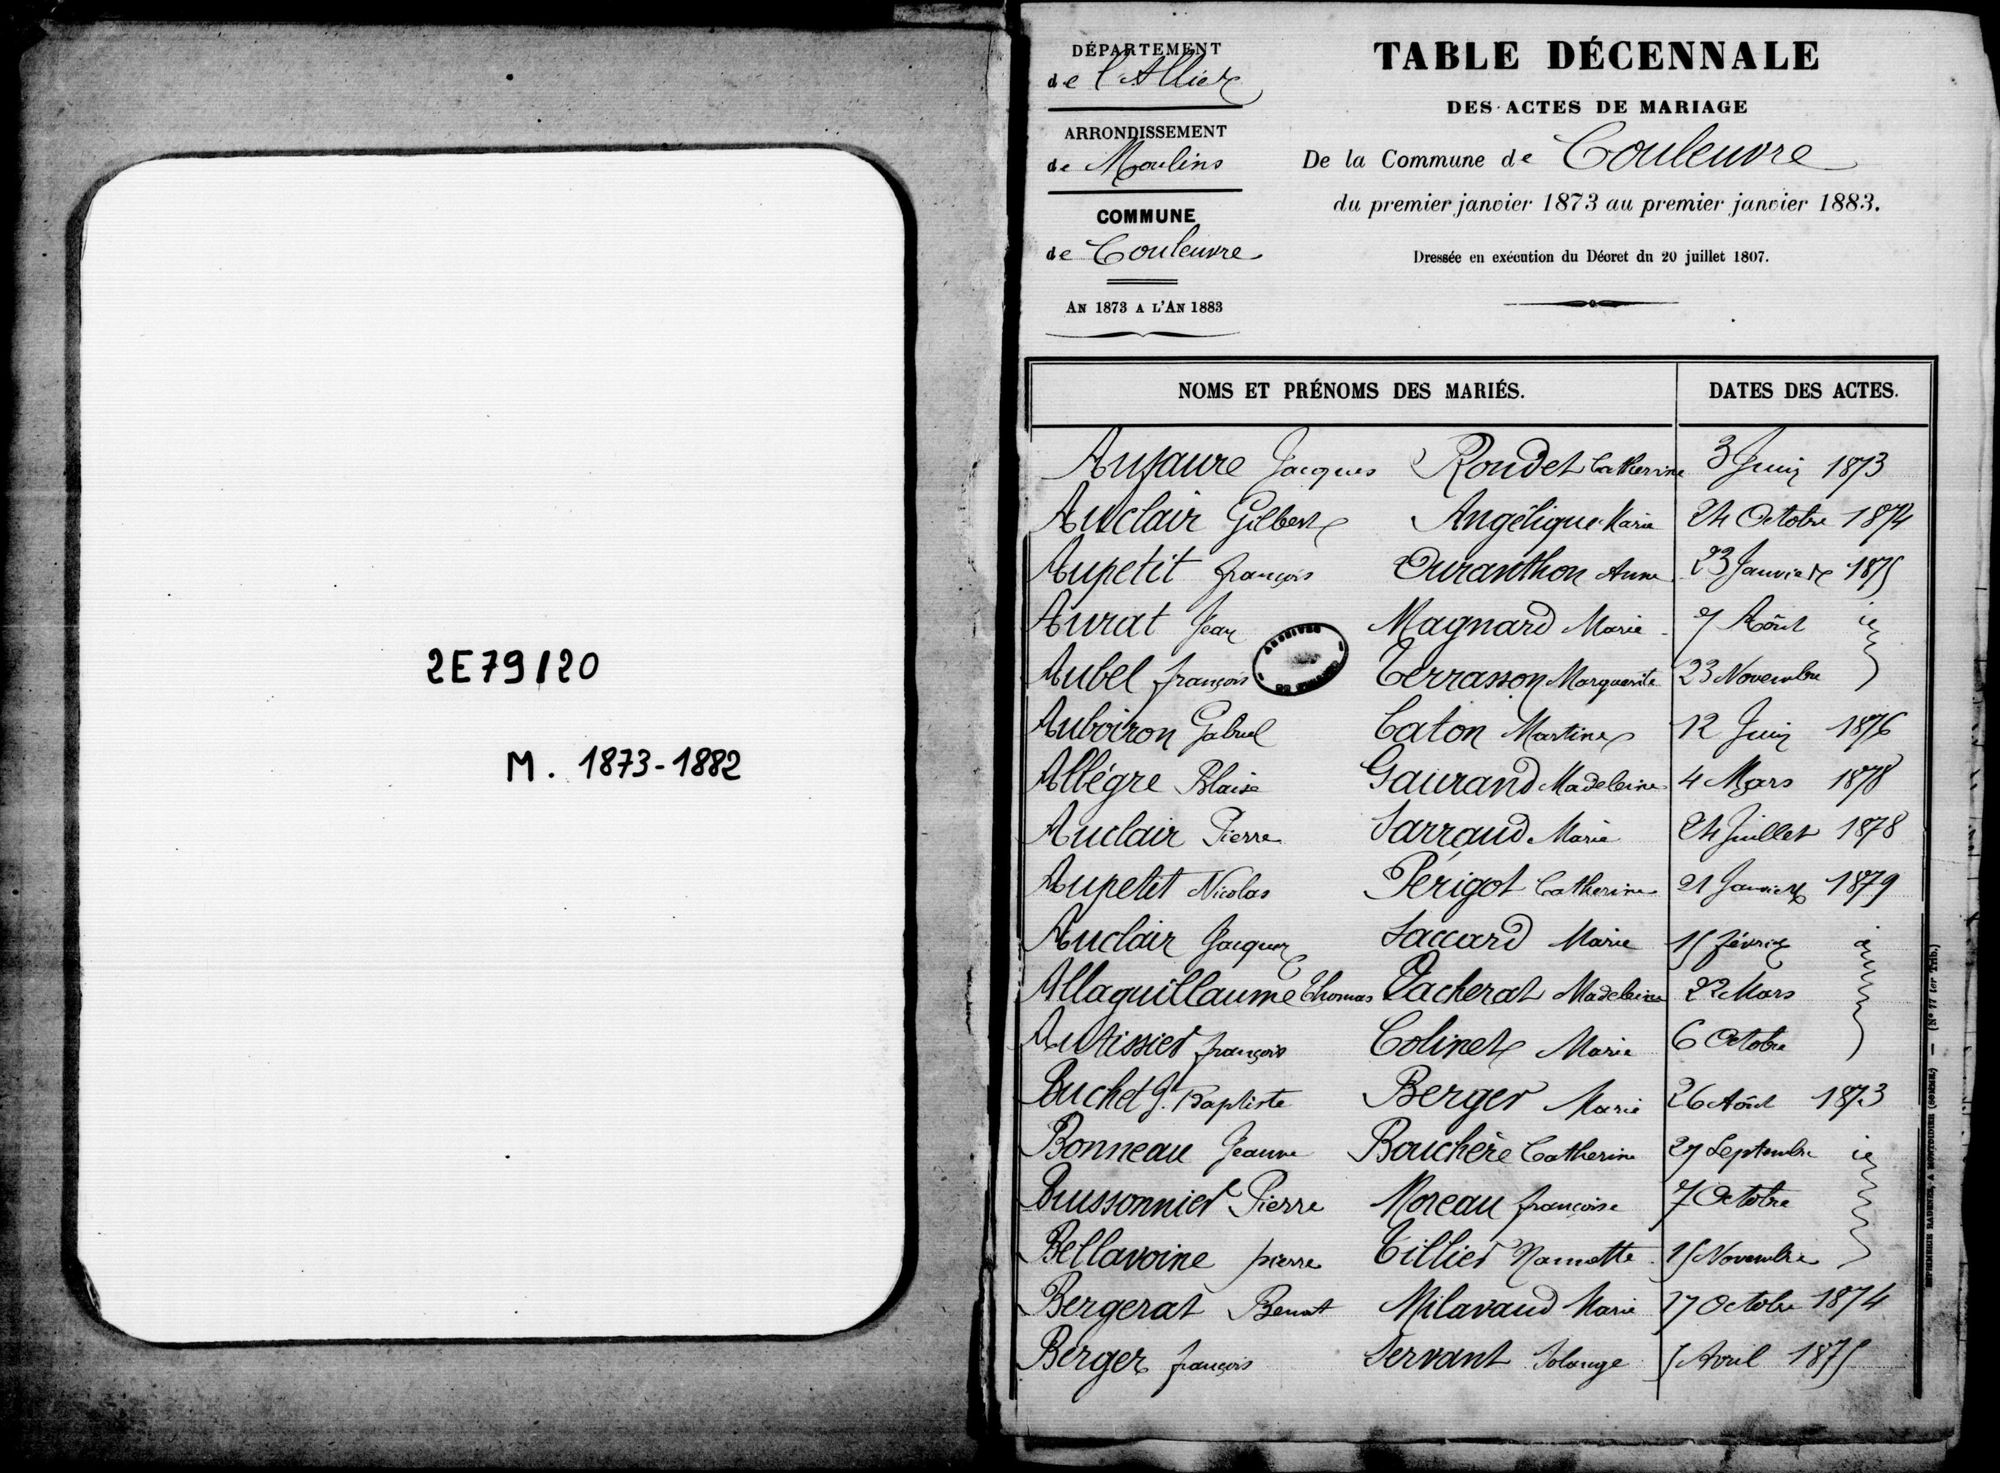 2E79/20
M. 1873-1882
DÉPARTEMENT
de l'Allier
ARRONDISSEMENT
de Moulins
COMMUNE
de Couleuvre
AN 1873 A L'AN 1883
TABLE DÉCENNALE
DES ACTES DE MARIAGE
De la Commune de Couleuvre
du premier janvier 1873 au premier janvier 1883.
Dressée en exécution du Décret du 20 juillet 1807.
NOMS ET PRÉNOMS DES MARIÉS. DATES DES ACTES.
Aujaure Jacques Rondet Catherine 3 Juin 1873
Auclair Gilbert Angélique Marie 24 Octobre 1874
Aupetit françois Duranthon Anne 23 Janvier 1875
Aurat Jean Magnard Marie 7 Août id
Aubel françois Terrasson Marguerite 23 Novembre
Auboiron Gabriel Caton Martine 12 Juin 1876
Allègre Blaise Gaurand Madeleine 4 Mars 1878
Auclair Pierre Sarraud Marie 24 Juillet 1878
Aupetit Nicolas Périgot Catherine 21 Janvier 1879
Auclair Jacques Saccard Marie 15 février
Allaguillaume Thomas Vacherat Madeleine 22 Mars
Autissier françois Colinet Marie 6 Octobre
Buchet J. Baptiste Berger Marie 26 Août 1873
Bonneau Jeanne Bouchère Catherine 27 Septembre id
Buissonnier Pierre Moreau françoise 7 Octobre
Bellavoine pierre Tillier Nannette 15 Novembre
Bergerat Benoit Milavaud Marie 27 Octobre 1874
Berger françois Servant Solange 5 Avril 1875
ARCHIVES
IMPRIMERIE RADENEZ, A MONTDIDIER (SOMME.) — (N° 77 ter Trib.)